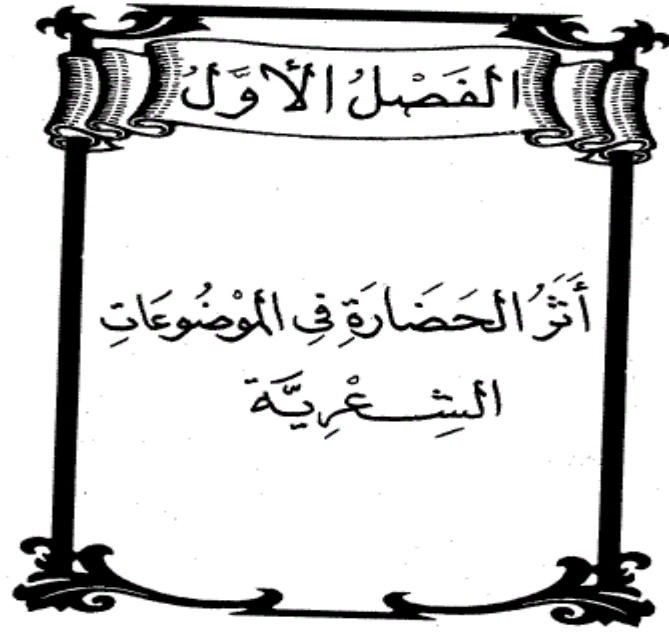 الفَصْلُ الأوَّلُ
أَثَرُ الحَضَارَةِ فِي المَوْضُوعَاتِ
الشِعْرِيَّة